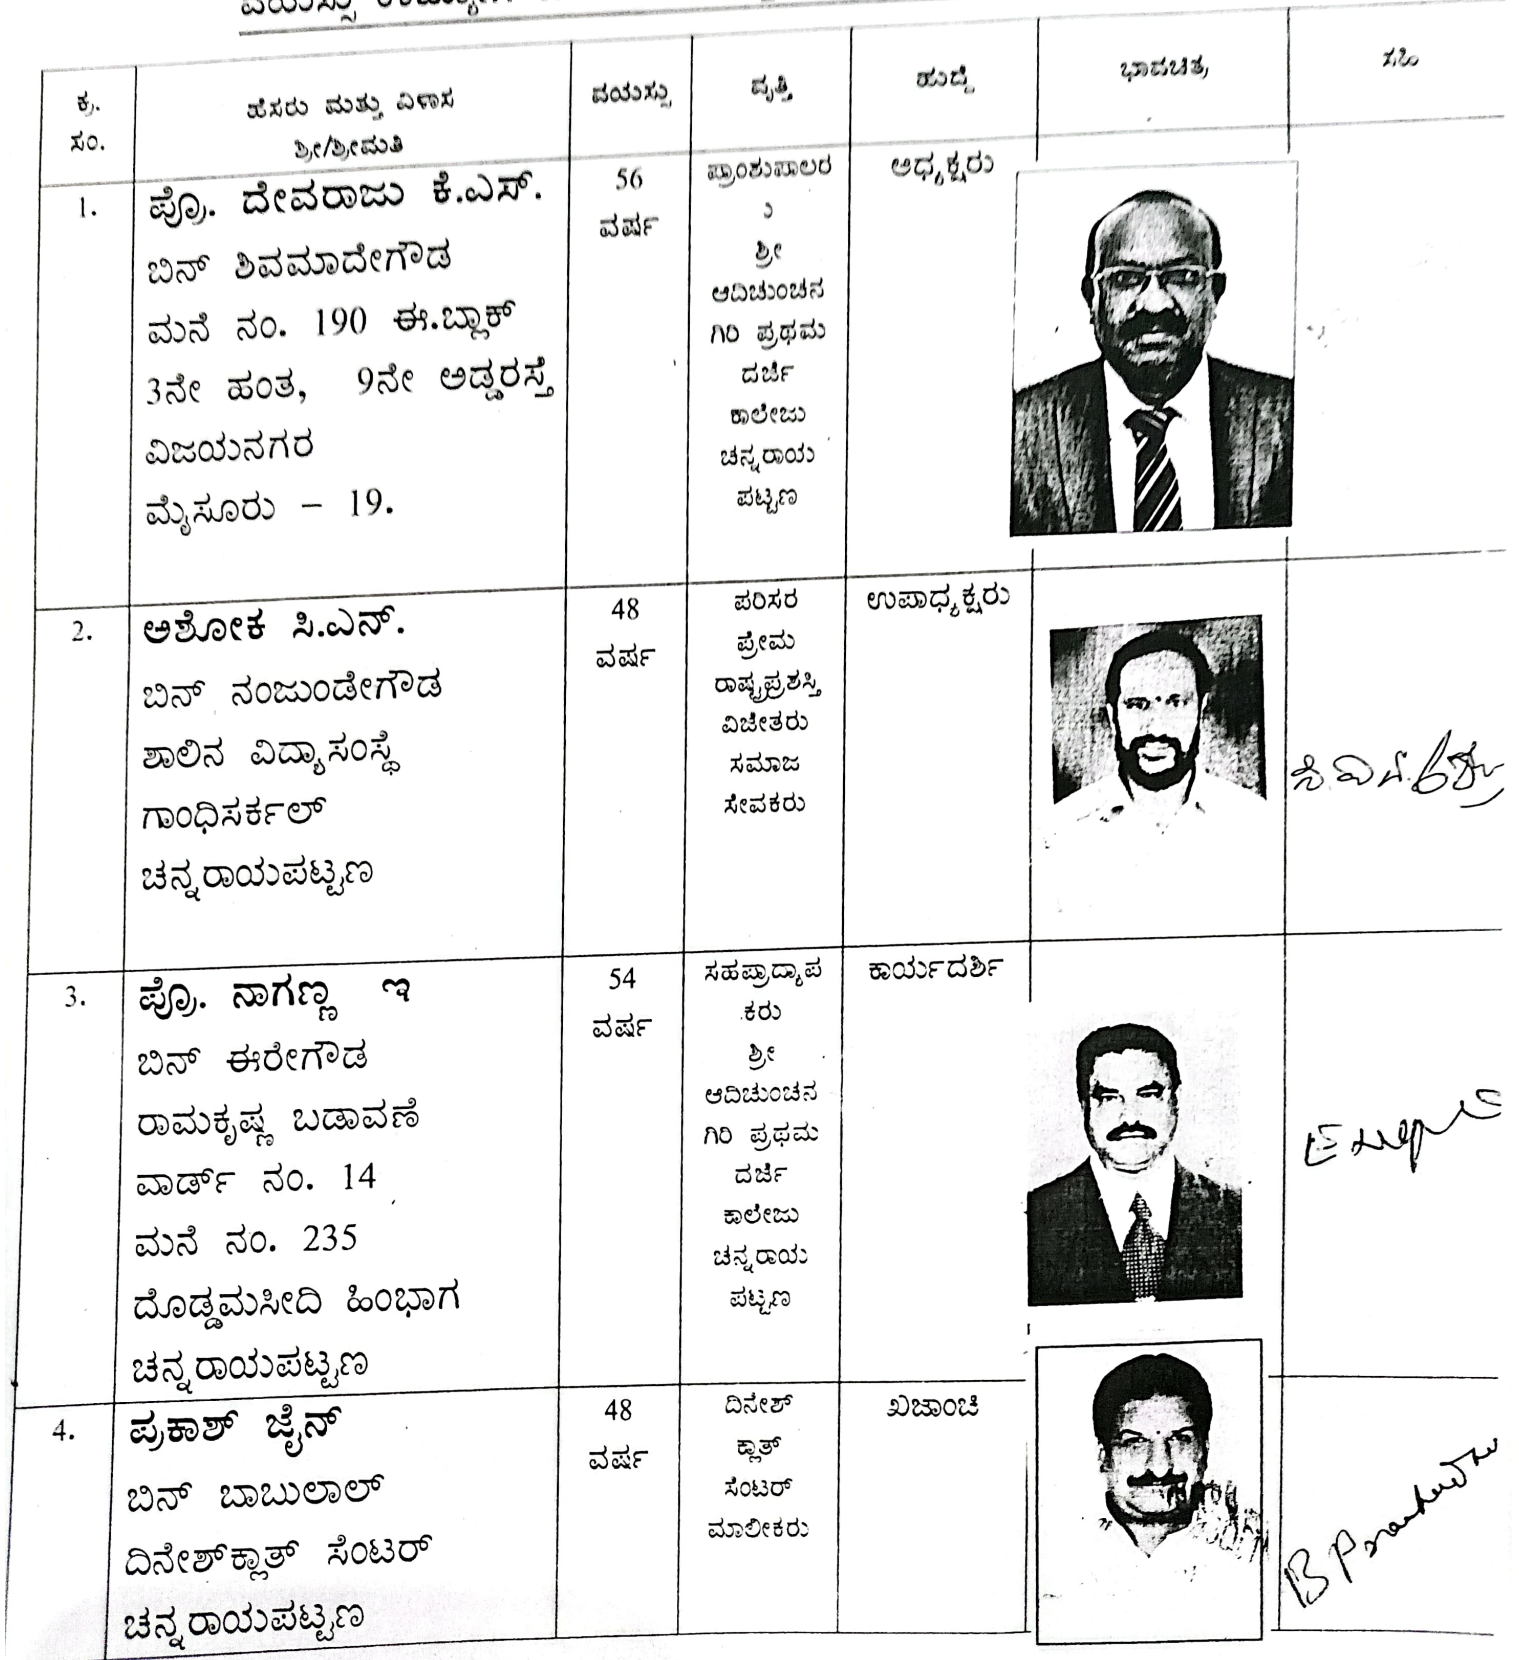 ವಯಸ್ಸು
ಕ್ರ.
ಸಂ.
ಹೆಸರು ಮತ್ತು ವಿಳಾಸ
ಶ್ರೀ/ಶ್ರೀಮತಿ
ವಯಸ್ಸು
ವೃತ್ತಿ
ಹುದ್ದೆ
ಭಾವಚಿತ್ರ
ಸಹಿ
1.
ಪ್ರೊ. ದೇವರಾಜು ಕೆ.ಎಸ್.
ಬಿನ್ ಶಿವಮಾದೇಗೌಡ
ಮನೆ ನಂ. 190 ಈ.ಬ್ಲಾಕ್
3ನೇ ಹಂತ, 9ನೇ ಅಡ್ಡರಸ್ತೆ
ವಿಜಯನಗರ
ಮೈಸೂರು – 19.
56
ವರ್ಷ
ಪ್ರಾಂಶುಪಾಲರ
ು
ಶ್ರೀ
ಆದಿಚುಂಚನ
ಗಿರಿ ಪ್ರಥಮ
ದರ್ಜೆ
ಕಾಲೇಜು
ಚನ್ನರಾಯ
ಪಟ್ಟಣ
ಅಧ್ಯಕ್ಷರು
2.
ಅಶೋಕ ಸಿ.ಎನ್.
ಬಿನ್ ನಂಜುಂಡೇಗೌಡ
ಶಾಲಿನ ವಿದ್ಯಾಸಂಸ್ಥೆ
ಗಾಂಧಿಸರ್ಕಲ್
ಚನ್ನರಾಯಪಟ್ಟಣ
48
ವರ್ಷ
ಪರಿಸರ
ಪ್ರೇಮ
ರಾಷ್ಟ್ರಪ್ರಶಸ್ತಿ
ವಿಜೇತರು
ಸಮಾಜ
ಸೇವಕರು
ಉಪಾಧ್ಯಕ್ಷರು
3.
ಪ್ರೊ. ನಾಗಣ್ಣ ಇ
ಬಿನ್ ಈರೇಗೌಡ
ರಾಮಕೃಷ್ಣ ಬಡಾವಣೆ
ವಾರ್ಡ್ ನಂ. 14
ಮನೆ ನಂ. 235
ದೊಡ್ಡಮಸೀದಿ ಹಿಂಭಾಗ
ಚನ್ನರಾಯಪಟ್ಟಣ
54
ವರ್ಷ
ಸಹಪ್ರಾದ್ಯಾಪ
ಕರು
ಶ್ರೀ
ಆದಿಚುಂಚನ
ಗಿರಿ ಪ್ರಥಮ
ದರ್ಜೆ
ಕಾಲೇಜು
ಚನ್ನರಾಯ
ಪಟ್ಟಣ
ಕಾರ್ಯದರ್ಶಿ
4.
ಪ್ರಕಾಶ್ ಜೈನ್
ಬಿನ್ ಬಾಬುಲಾಲ್
ದಿನೇಶ್‌ಕ್ಲಾತ್ ಸೆಂಟರ್
ಚನ್ನರಾಯಪಟ್ಟಣ
48
ವರ್ಷ
ದಿನೇಶ್
ಕ್ಲಾತ್
ಸೆಂಟರ್
ಮಾಲೀಕರು
ಖಜಾಂಚಿ